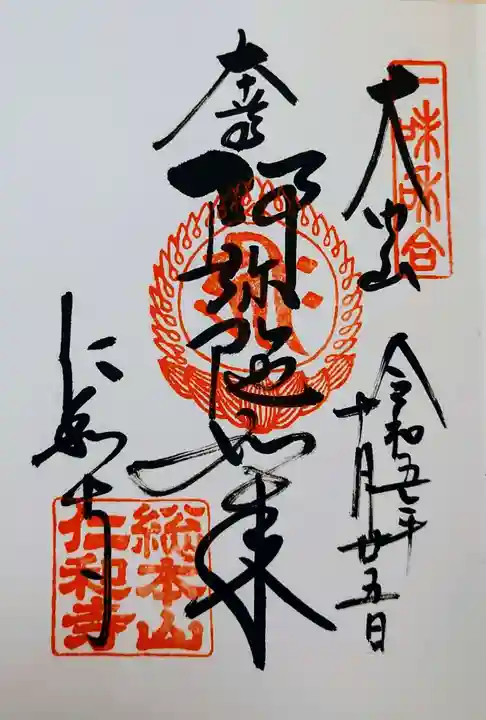 一味和合
大宝山
令和五年
十月廿五日
奉拝
阿弥陀如来
仁和寺
総本山
仁和寺